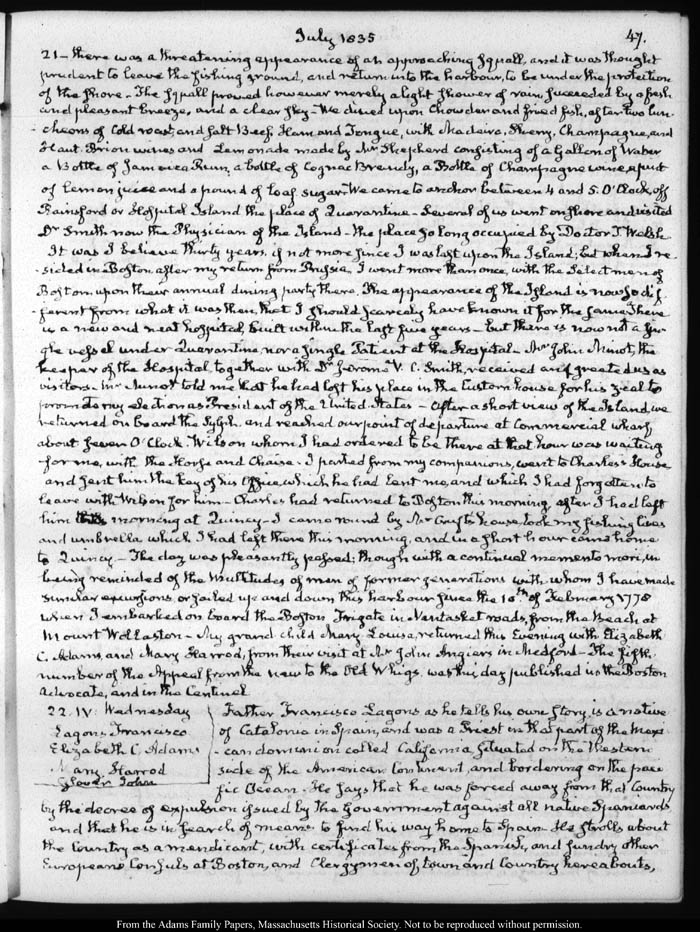 July 1835
47.
21 — there was a threatening appearance of an approaching squall, and it was thought
prudent to leave the fishing ground, and return into the harbour, to be under the protection
of the Shore — The squall proved however merely a light shower of rain, succeeded by a fresh
and pleasant breeze, and a clear sky — We dined upon Chowder and fried fish, after two lun-
cheons of Cold roast, and salt Beef, Ham and Tongue, with Madeira, Sherry, Champagne, and
Haut Brion wines and Lemonade made by Mr Shepherd consisting of a Gallon of Water
a Bottle of Jamaica Rum, a bottle of Cognac Brandy, a Bottle of Champagne wine, a pint
of lemon juice and a pound of loaf sugar. We came to anchor between 4 and 5. O'Clock, off
Rainsford or Hospital Island the place of Quarantine — Several of us went on shore and visited
Dr Smith now the Physician of the Island — the place so long occupied by Doctor T. Welsh.
It was I believe thirty years, if not more since I was last upon the Island; but when I re-
-sided in Boston, after my return from Prussia, I went more than once, with the Select men of
Boston, upon their annual dining party there. The appearance of the Island is now so dif-
-ferent from what it was then, that I should scarcely have known it for the same. There
is a new and neat hospital, built within the last five years — but there is now not a sin-
gle vessel under Quarantine, nor a single Patient at the Hospital — Mr John Minot, the
keeper of the Hospital, together with Dr Jerome V. C. Smith, received and greeted us as
visitors — Mr Minot told me that he had lost his place in the Custom house for his zeal to
promote my election as President of the United States — After a short view of the Island, we
returned on board the Sylph, and reached our point of departure at Commercial wharf
about seven O'Clock. Wilson whom I had ordered to be there at that hour was waiting
for me, with the Horse and Chaise. I parted from my companions, went to Charles's House
and sent him the key of his Office, which he had lent me, and which I had forgotten to
leave with Wilson for him — Charles had returned to Boston this morning, after I had left
him this morning at Quincy — I came round by Mr house, took my fishing lines
and umbrella which I had left there this morning, and in a short hour came home
to Quincy. — The day was pleasantly passed; though with a continual memento mori, in
being reminded of the multitudes of men of former generations with whom I have made
similar excursions, or sailed up and down this harbour since the 10th of February 1778
when I embarked on board the Boston frigate in Nantasket roads, from the Beach at
Mount Wollaston — My grand child Mary Louisa, returned this Evening with Elizabeth
C. Adams, and Mary Harrod, from their visit at Mr John Angier's in Medford — The fifth
number of the Appeal from the new to the Old Whigs, was this day published in the Boston
Advocate, and in the Centinel
22. IV. Wednesday
Lagons Francisco
Elizabeth C. Adams
Mary Harrod
Glover John
Father Francisco Lagons as he tells his own story, is a native
of Catalonia in Spain, and was a Priest in that part of the Mexi-
-can dominion called California, situated on the Western
side of the American Continent, and bordering on the paci-
fic Ocean. He says that he was forced away from that Country
by the decree of expulsion issued by the Government against all native Spaniards
and that he is in search of means to find his way home to Spain. He strolls about
the Country as a mendicant, with certificates from the Spanish, and sundry other
European Consuls at Boston, and Clergymen of town and Country hereabouts,
From the Adams Family Papers, Massachusetts Historical Society. Not to be reproduced without permission.